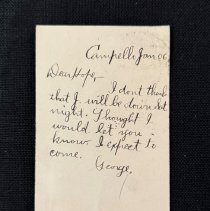 Campbell, Jan 06
Dear Hope,
I dont think
that I will be down Sat
night. Thought I
would let you
know I expect to
come.
George,